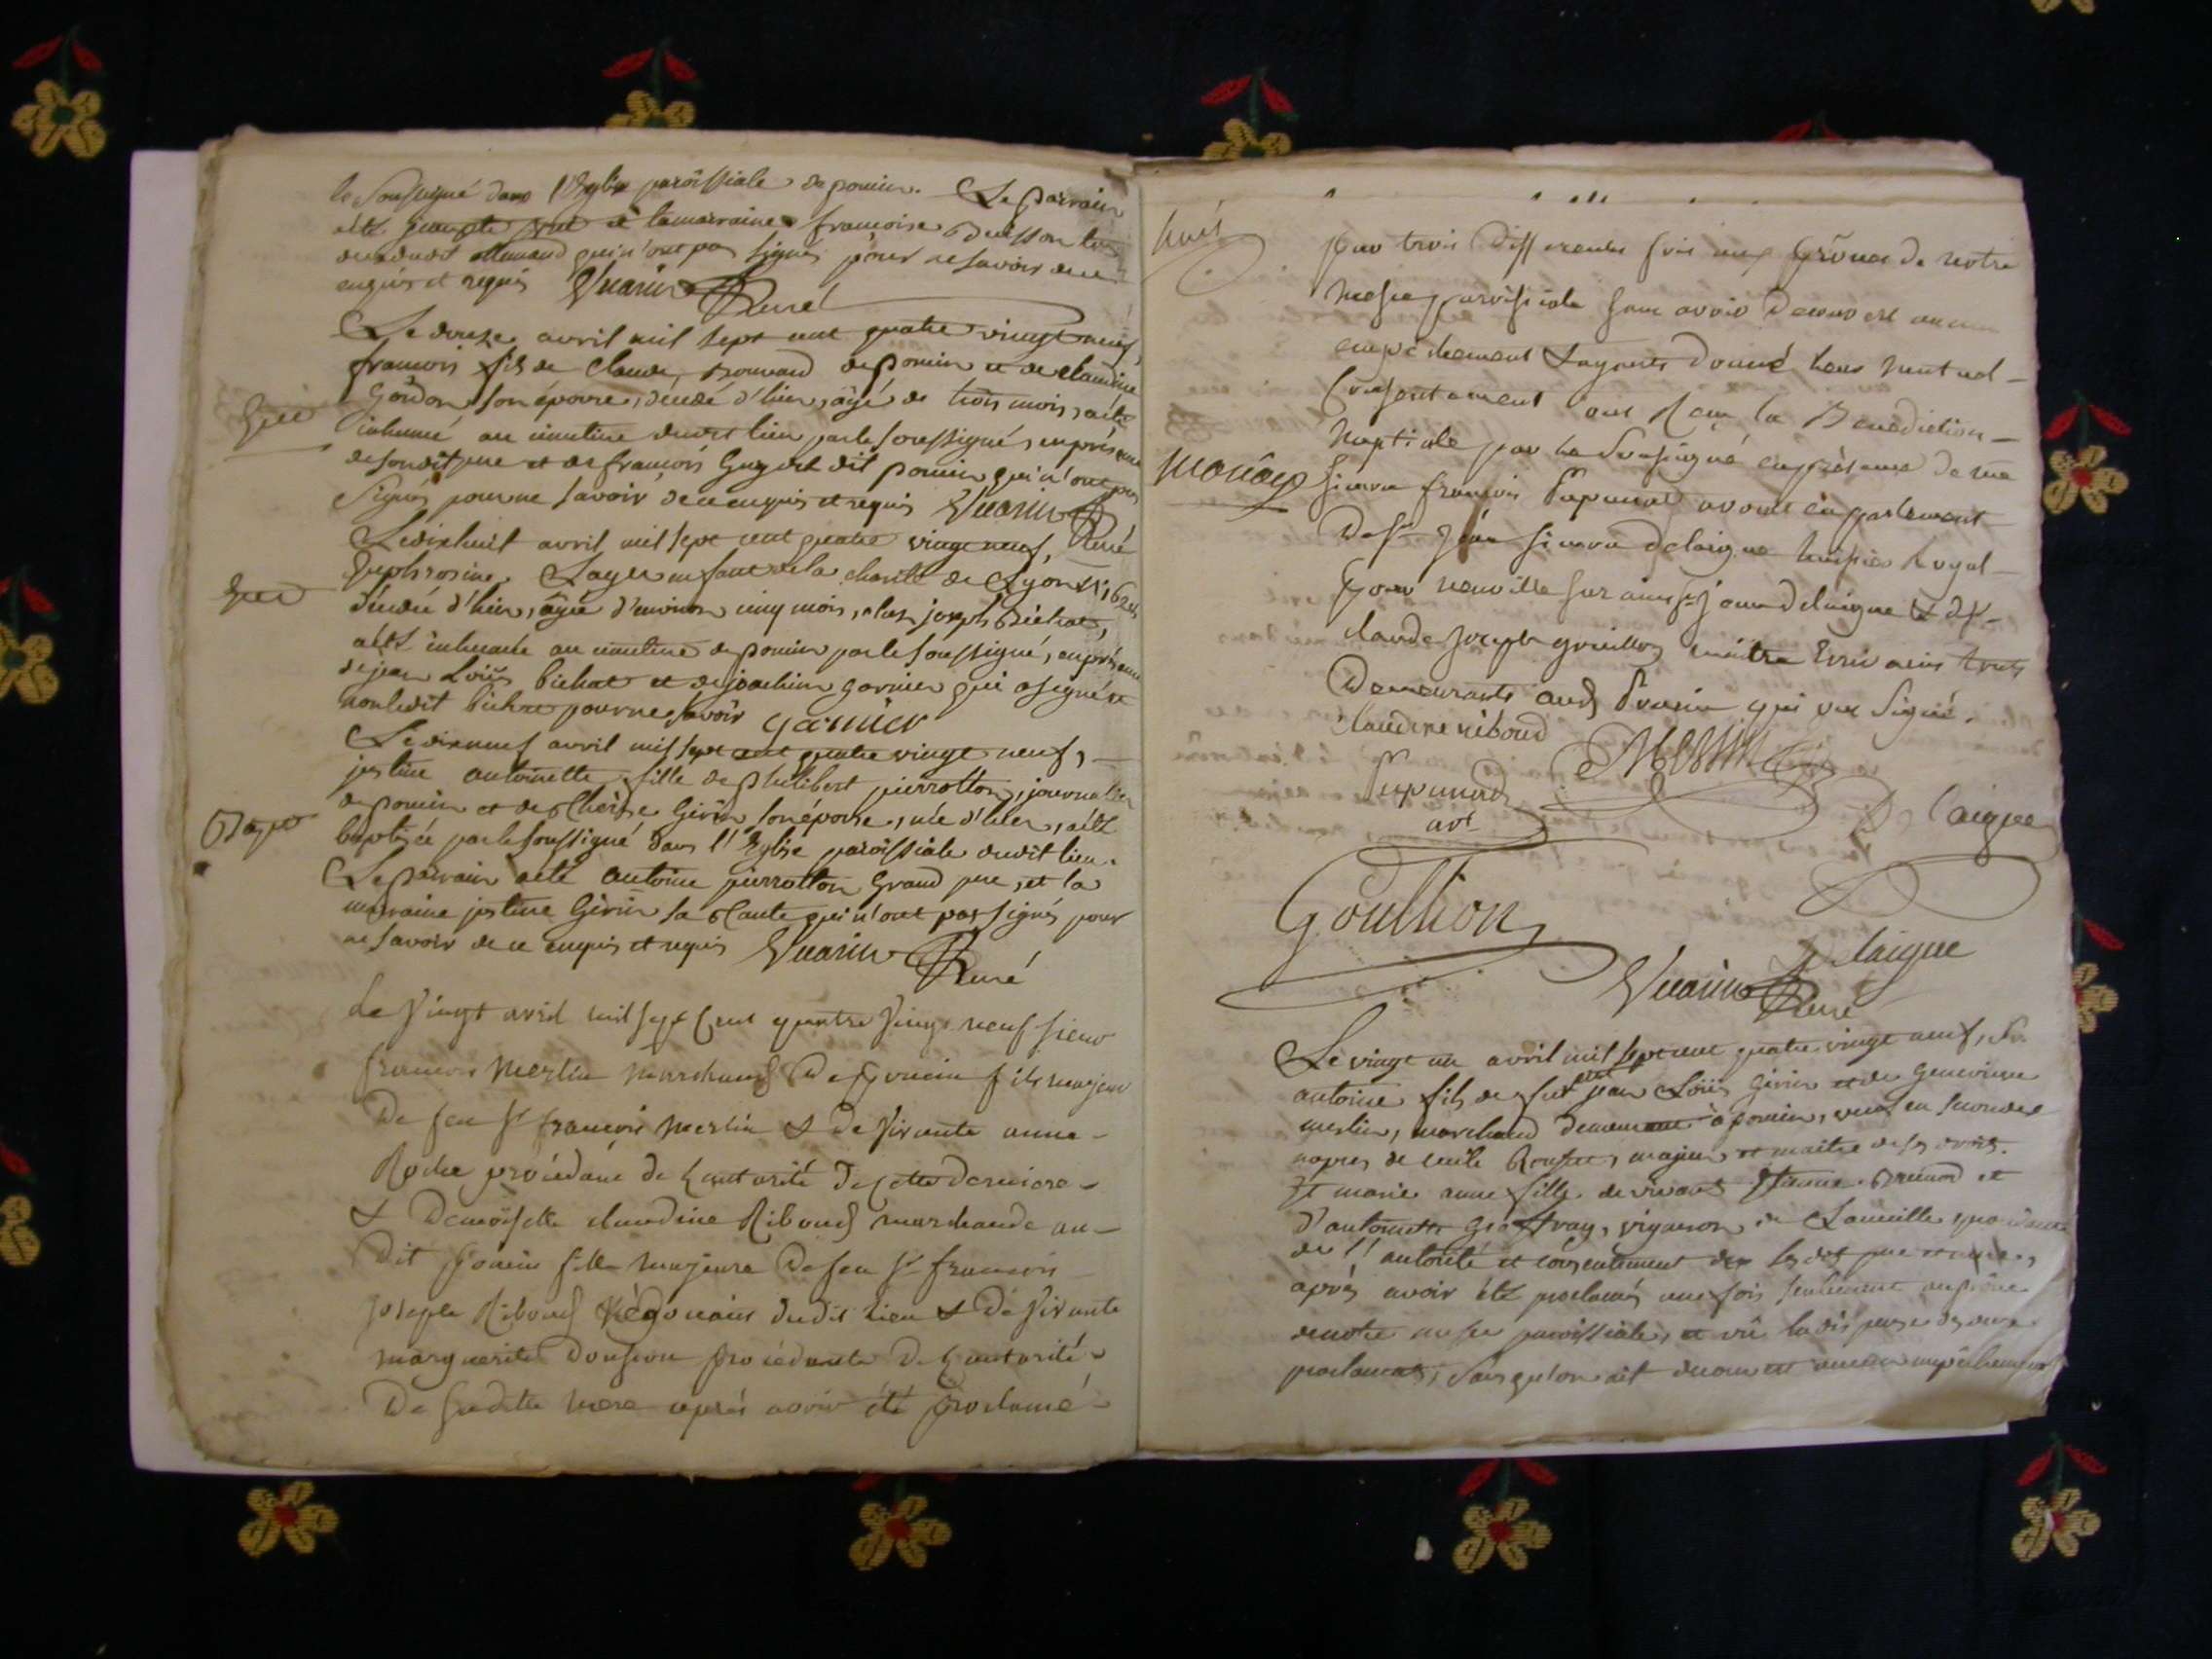 le soussigné dans l'Eglise paroissiale de poncin. Le parrain
a été et la marraine francoise Buisson tous
deux dudit qui n'ont pas signés pour ne savoir de ce
enquis et requis Vuarin Curé
Le douze avril mil sept cent quatre vingt neuf,
francois fils de Claude, de poncin et de claudine
Goidon son épouse, décédé d'hier, âgé de trois mois, a été
inhumé au cimetiere dudit lieu par le soussigné, en présence
de son dit pere et de francois Guyot dit poncin qui n'ont pas
signés pour ne savoir de ce enquis et requis Vuarin
Curé
Le dixhuit avril mil sept cent quatre vingt neuf,
Euphrosine Layer enfant de la charité de Lyon
décédée d'hier, âgée d'environ cinq mois, chez joseph Bichat,
a été inhumée au cimetiere de poncin par le soussigné, en présence
de jean Loüis bichat et de joachim garnier qui a signé et
non ledit bichat pour ne savoir garnier
Le dixneuf avril mil sept cent quatre vingt neuf,
justine antoinette fille de philibert pierrotton, journalier
de poncin et de Therese Girin son épouse, née d'hier, a été
Bapt
baptisée par le soussigné dans l'Eglise paroissiale dudit lieu.
Le parrain a été antoine pierrotton Grand pere, et la
marraine justine Girin sa Tante qui n'ont pas signés pour
ne savoir de ce enquis et requis Vuarin Curé
Le vingt avril mil sept cent quatre vingt neuf sieur
francois Merlin marchand de poncin fils majeur
de feu sr francois Merlin & de vivante anne
Roche procédant de l'autorité de cette derniere
& Demoiselle claudine Riboud marchande au
dit poncin fille majeure de feu sr francois
joseph Riboud négociant dudit lieu & de vivante
marguerite procédante de l'autorité
de sa dite mere après avoir été proclamé
par trois differentes fois aux prônes de notre
messe paroissiale sans avoir decouvert aucun
empêchement & ayants donné leur mutuel
consentement ont reçu la Benediction
mariage
nuptiale par le soussigné en présence de me
pierre francois avocat en parlement
de sr jean pierre delaigue huissier Royal
pour neuville sur ains sr jean delaigue & de sr
claude joseph gouillon maître Ecrivain tous
demeurants aud poncin qui ont signé.
claudine riboud Merlin
avt
Delaigue
Gouillion
Delaigue
Vuarin Curé
Le vingt un avril mil sept cent quatre vingt neuf, sr
antoine fils de feu jean Loüis Girin et de Genevieve
merlin, marchand demeurant à poncin, veuf en secondes
nopces de majeur et maitre de ses droits.
Et marie anne fille de vivants Etienne Brunod et
d'antoinette Geoffray, vigneron de procédante
de l'autorité et consentement de ses dits pere et mere,
après avoir été proclamés une fois seulement au prône
de notre messe paroissiale, et vû la dispense de deux
proclamats, sans qu'on ait decouvert aucun empêchement